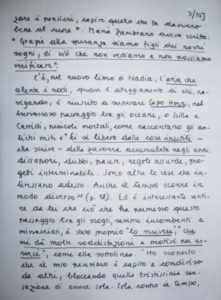 3/143
gere i pensieri, capire quello che fa
bene al cuore". Maria Zambrano aveva scritto:
"Grazie alla speranza siamo figli dei nostri
sogni, di ciò che non vediamo e non possiamo
verificare".
C'è, nel nuovo libro di Nadia, l'aria che
allenta i nodi, quasi l'atteggiamento di chi, na-
vigando, è riuscito a superare Capo Horn, nel
burrascoso passaggio tra gli oceani, o Scilla e
Cariddi, pericoli mortali, come raccontano gli an-
tichi miti. "È la libertà dalle cose inutili -
ella scrive - dalla zavorra accumulata negli anni:
dissapori, dubbi, paure, regole assurde, pro-
getti interminabili. Sono altre le cose che in-
teressano adesso. Anche il tempo scorre in
modo diverso" (p. 21). Ed è interessante
te da lei che ciò che ha permesso questo
passaggio tra gli scogli, sempre incombenti e
minacciosi, è stato proprio "lo scrivere" "che
mi dà molte soddisfazioni e motivi per es-
serci", come ella sottolinea. "Ho scoperto
che il mio pensiero è capito e condiviso
da altri, bloccando quella tristissima sen-
sazione di essere sola. Sola contro il tempo,